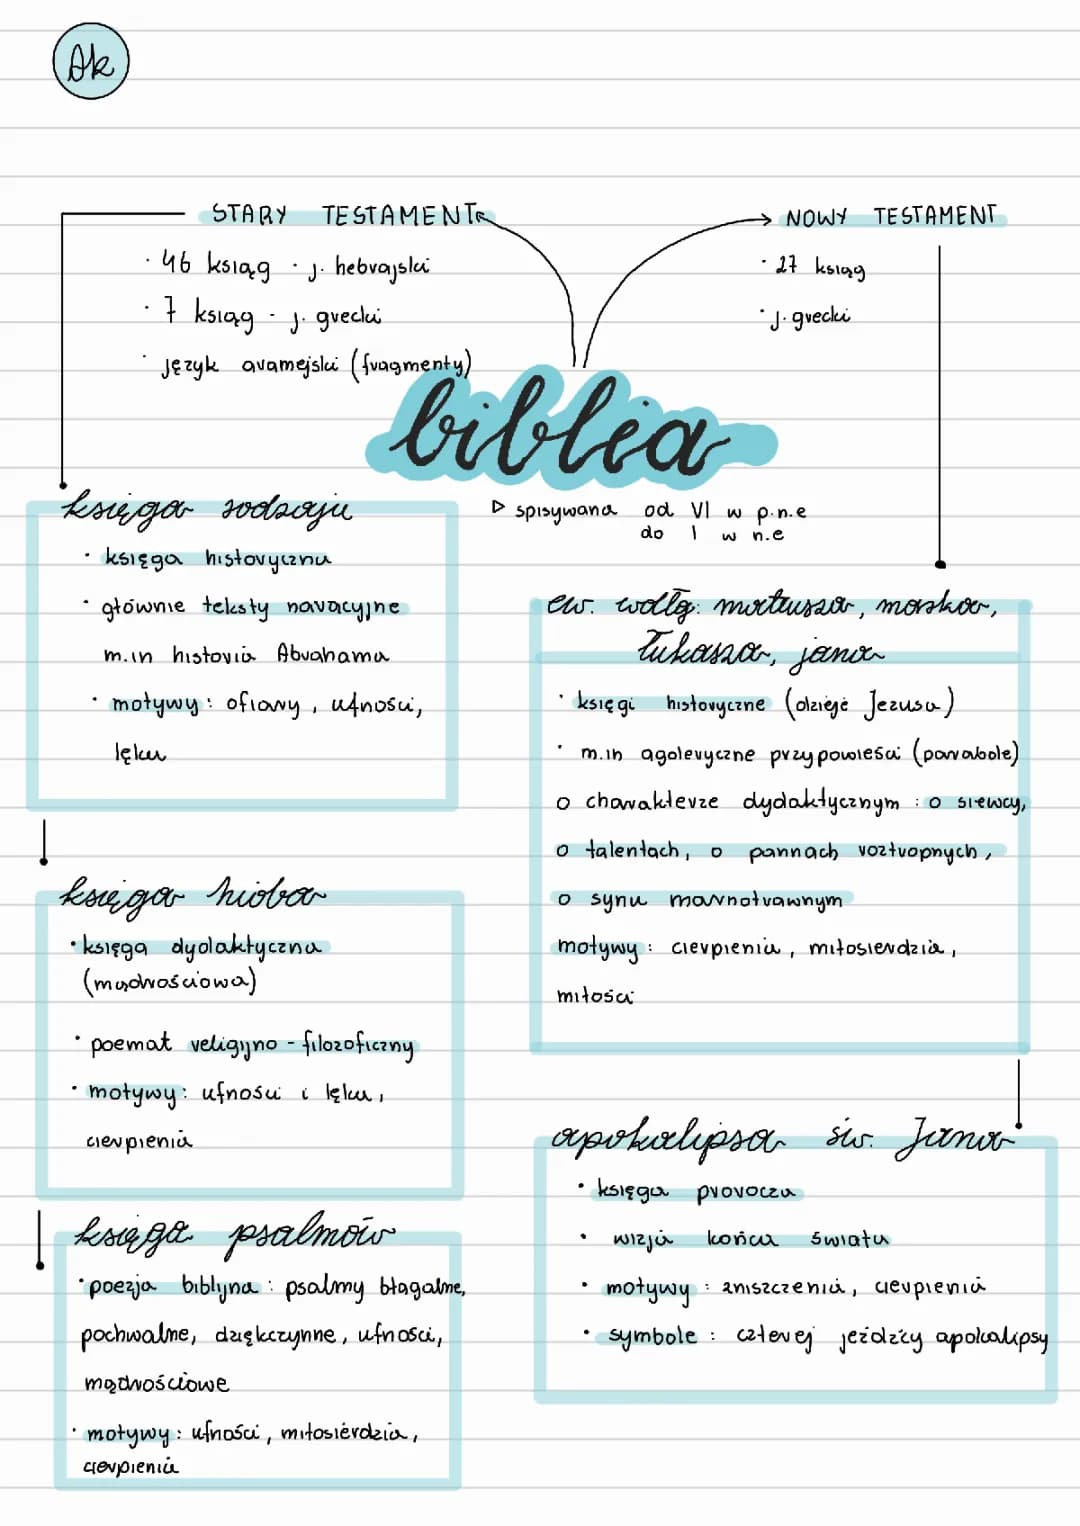 Ak
STARY TESTAMENT
· 46 ksiąg · j. hebrajski
· 7 ksiąg - j. grecki
· język aramejski (fragmenty)
NOWY TESTAMENT
· 27 ksiąg
· j. grecki
biblia
▷ spisywana od VI w p.n.e
do I w n.e
księga rodzaju
· księga historyczna
· głównie teksty naracyjne
m.in historia Abrahama
· motywy: ofiary, ufności,
lęku
księga hioba
· księga dydaktyczna
(mądrościowa)
· poemat religijno - filozoficzny
· motywy: ufności i lęku,
cierpienia
księga psalmów
· poezja biblijna: psalmy błagalne,
pochwalne, dziękczynne, ufności,
mądrościowe
· motywy: ufności, miłosierdzia,
cierpienia
ew. wdłg: mateusza, marka,
łukasza, jana
· księgi historyczne (dzieje Jezusa)
· m.in agoleryczne przypowieści (parabole)
o charakterze dydaktycznym: o siewcy,
o talentach, o pannach roztropnych,
o synu marnotrawnym
motywy: cierpienia, miłosierdzia,
miłości
apokalipsa św. Jana
· księga prorocza
· wizja końca świata
· motywy: zniszczenia, cierpienia
· symbole: czterej jeźdźcy apokalipsy